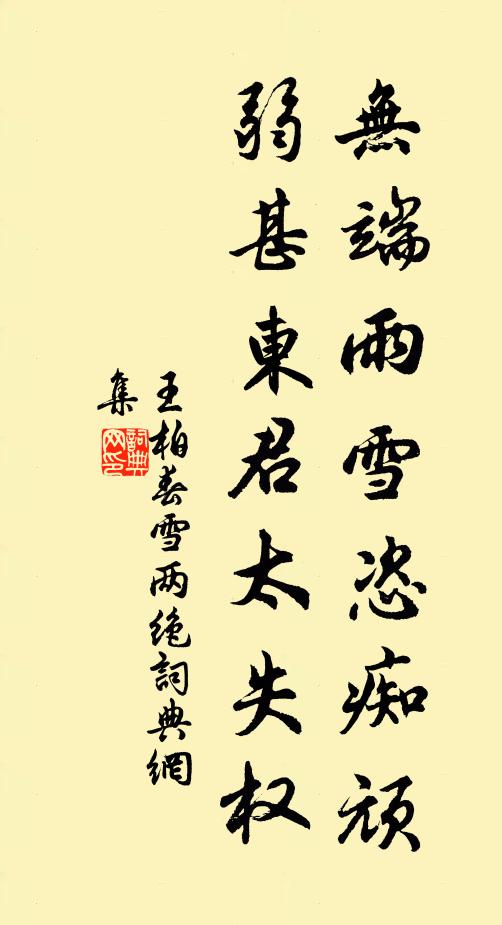 無端雨雪恣痴頑
弱甚東君太失权
王柏春雪两绝詞典網
集
詞典
网印